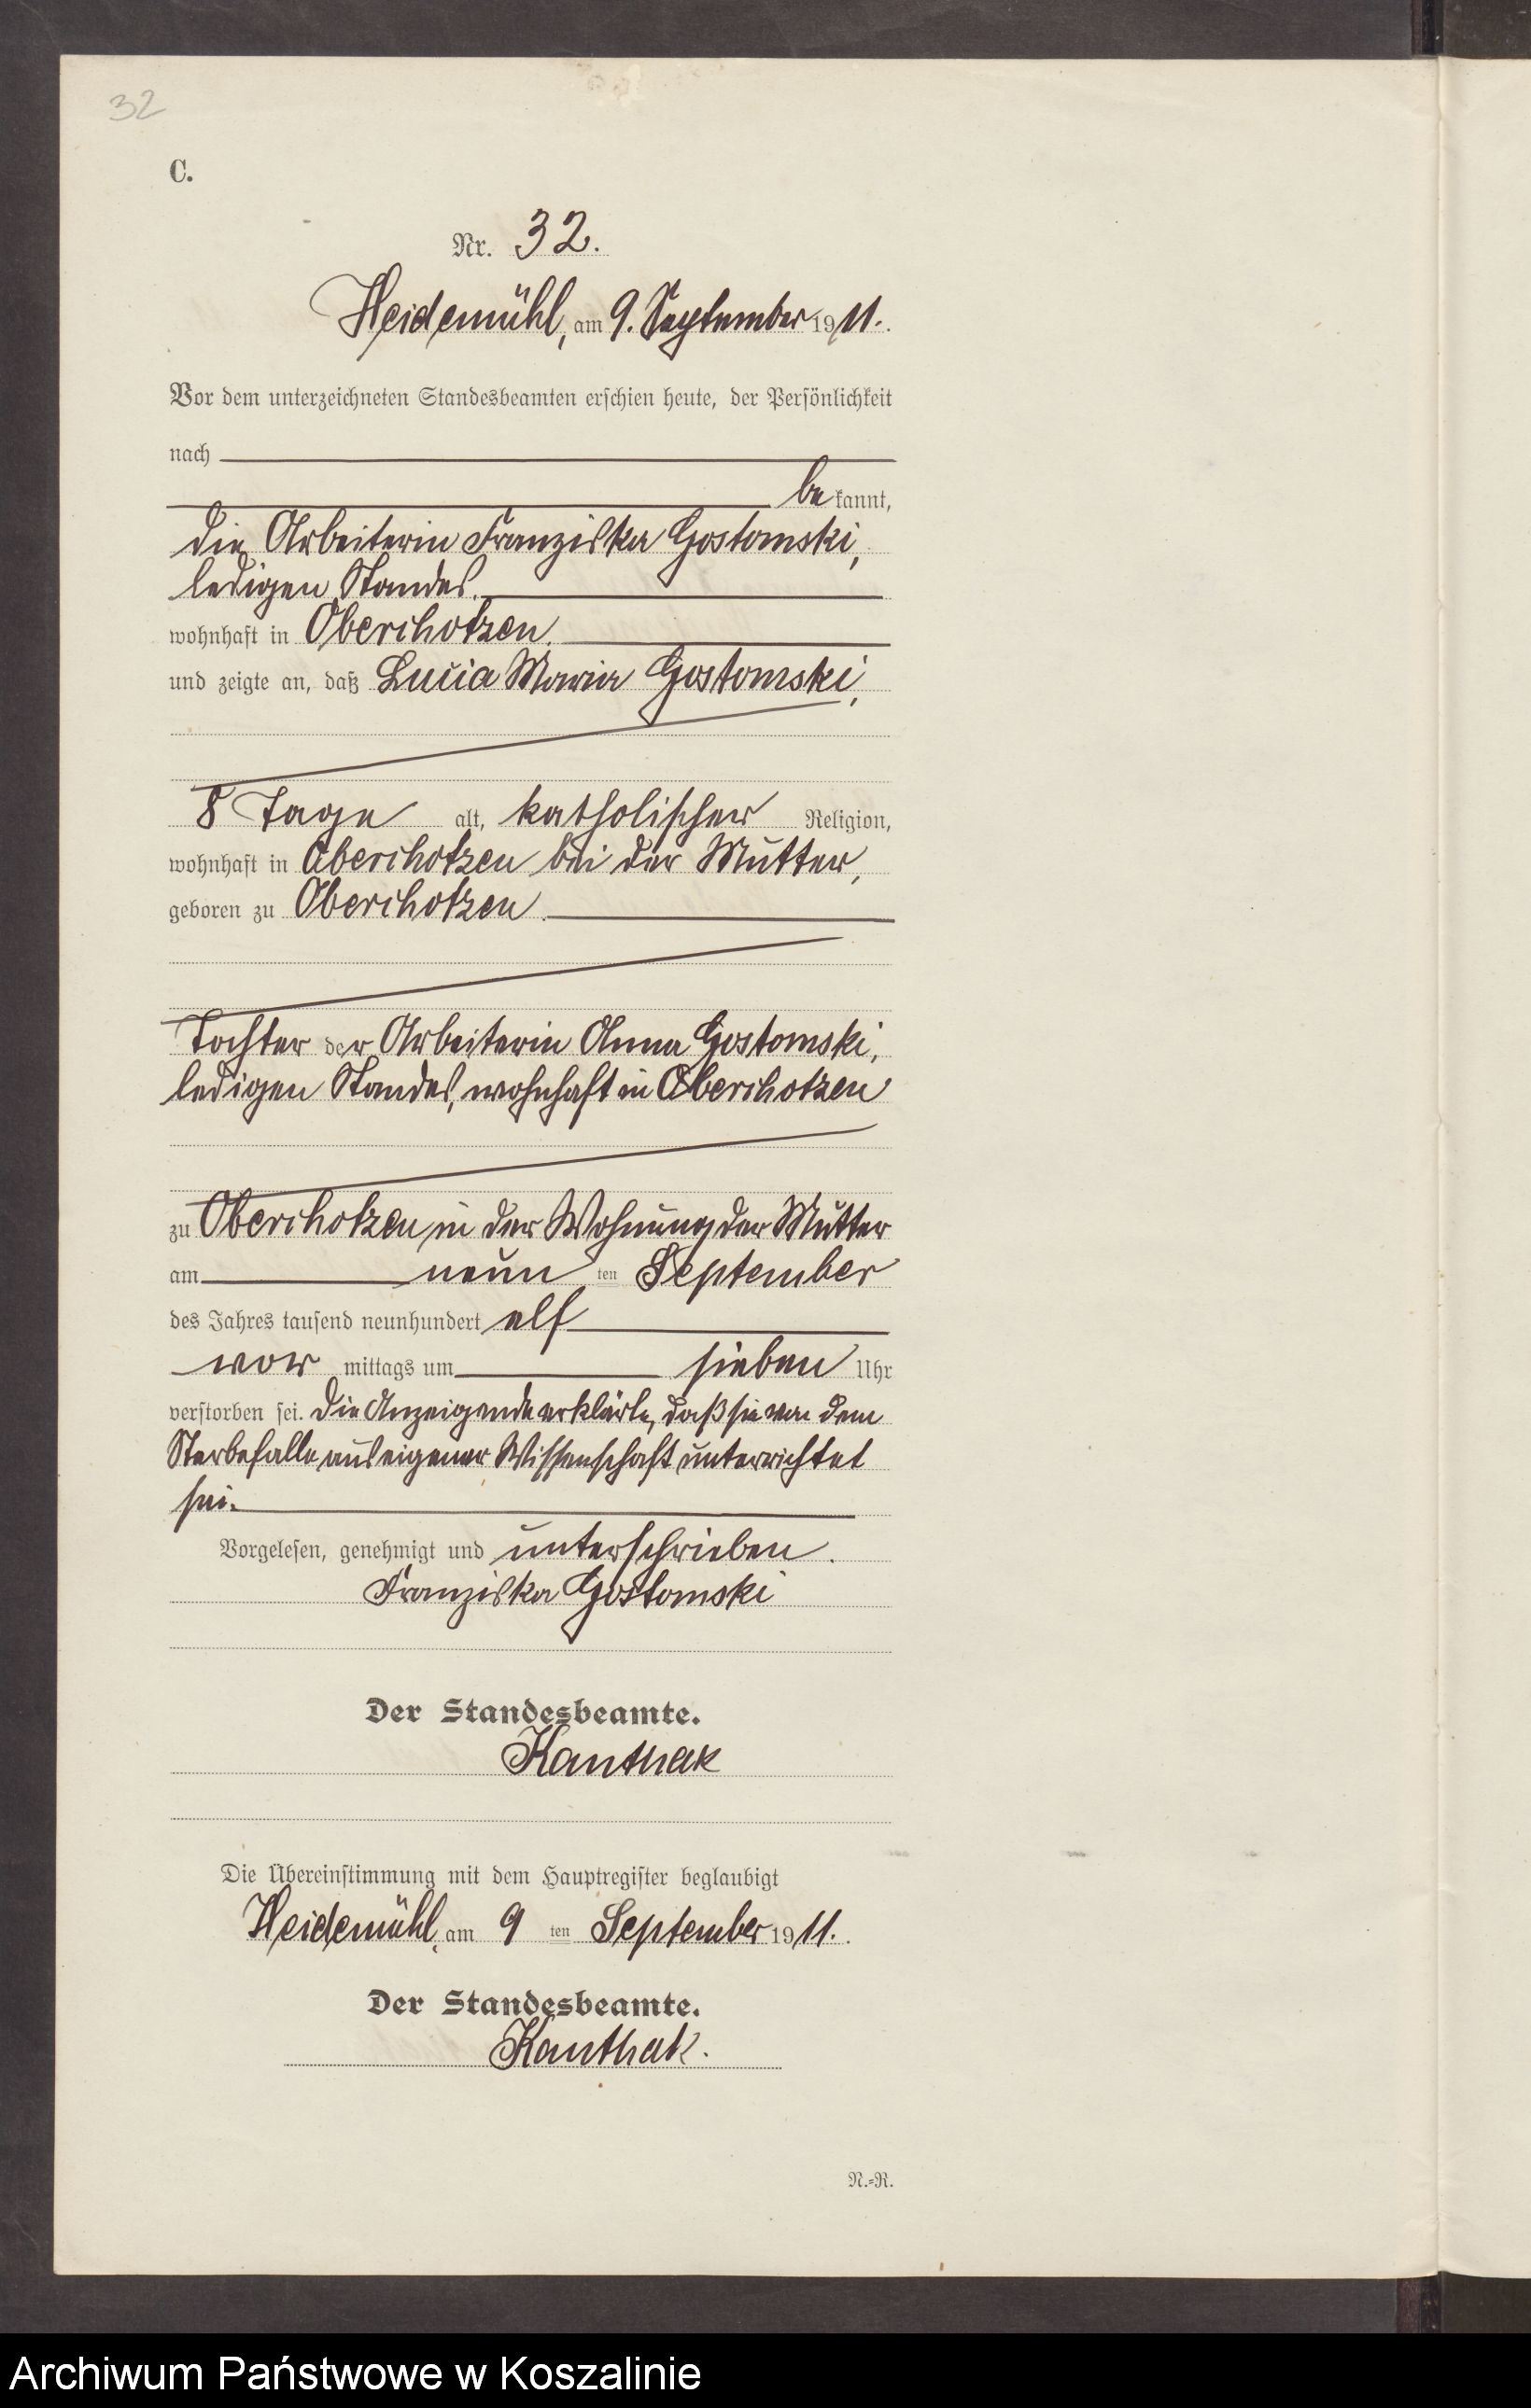 32
C.
Nr. 32.
Heidemühl, am 9. September 1911.
Vor dem unterzeichneten Standesbeamten erschien heute, der Persönlichkeit
nach
be kannt,
die Arbeiterin Franziska Gostomski,
ledigen Standes.
wohnhaft in Oberchotzen.
und zeigte an, daß Lucia Maria Gostomski,
8 Tage alt, katholischer Religion,
wohnhaft in Oberchotzen bei der Mutter,
geboren zu Oberchotzen.
Tochter der Arbeiterin Anna Gostomski,
ledigen Standes, wohnhaft in Oberchotzen
zu Oberchotzen in der Wohnung der Mutter
am neun ten September
des Jahres tausend neunhundert elf
vor mittags um sieben Uhr
verstorben sei. Die Anzeigende erklärte, daß sie von dem
Sterbefalle aus eigener Wissenschaft unterrichtet
sei.
Vorgelesen, genehmigt und unterschrieben.
Franziska Gostomski
Der Standesbeamte.
Kanthak
Die Übereinstimmung mit dem Hauptregister beglaubigt
Heidemühl, am 9 ten September 1911.
Der Standesbeamte.
Kanthak.
N.=R.
Archiwum Państwowe w Koszalinie